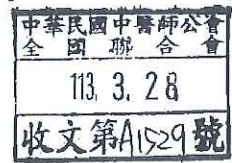 中華民國中醫師公會
全國聯合會
113. 3. 28
收文第A1529號